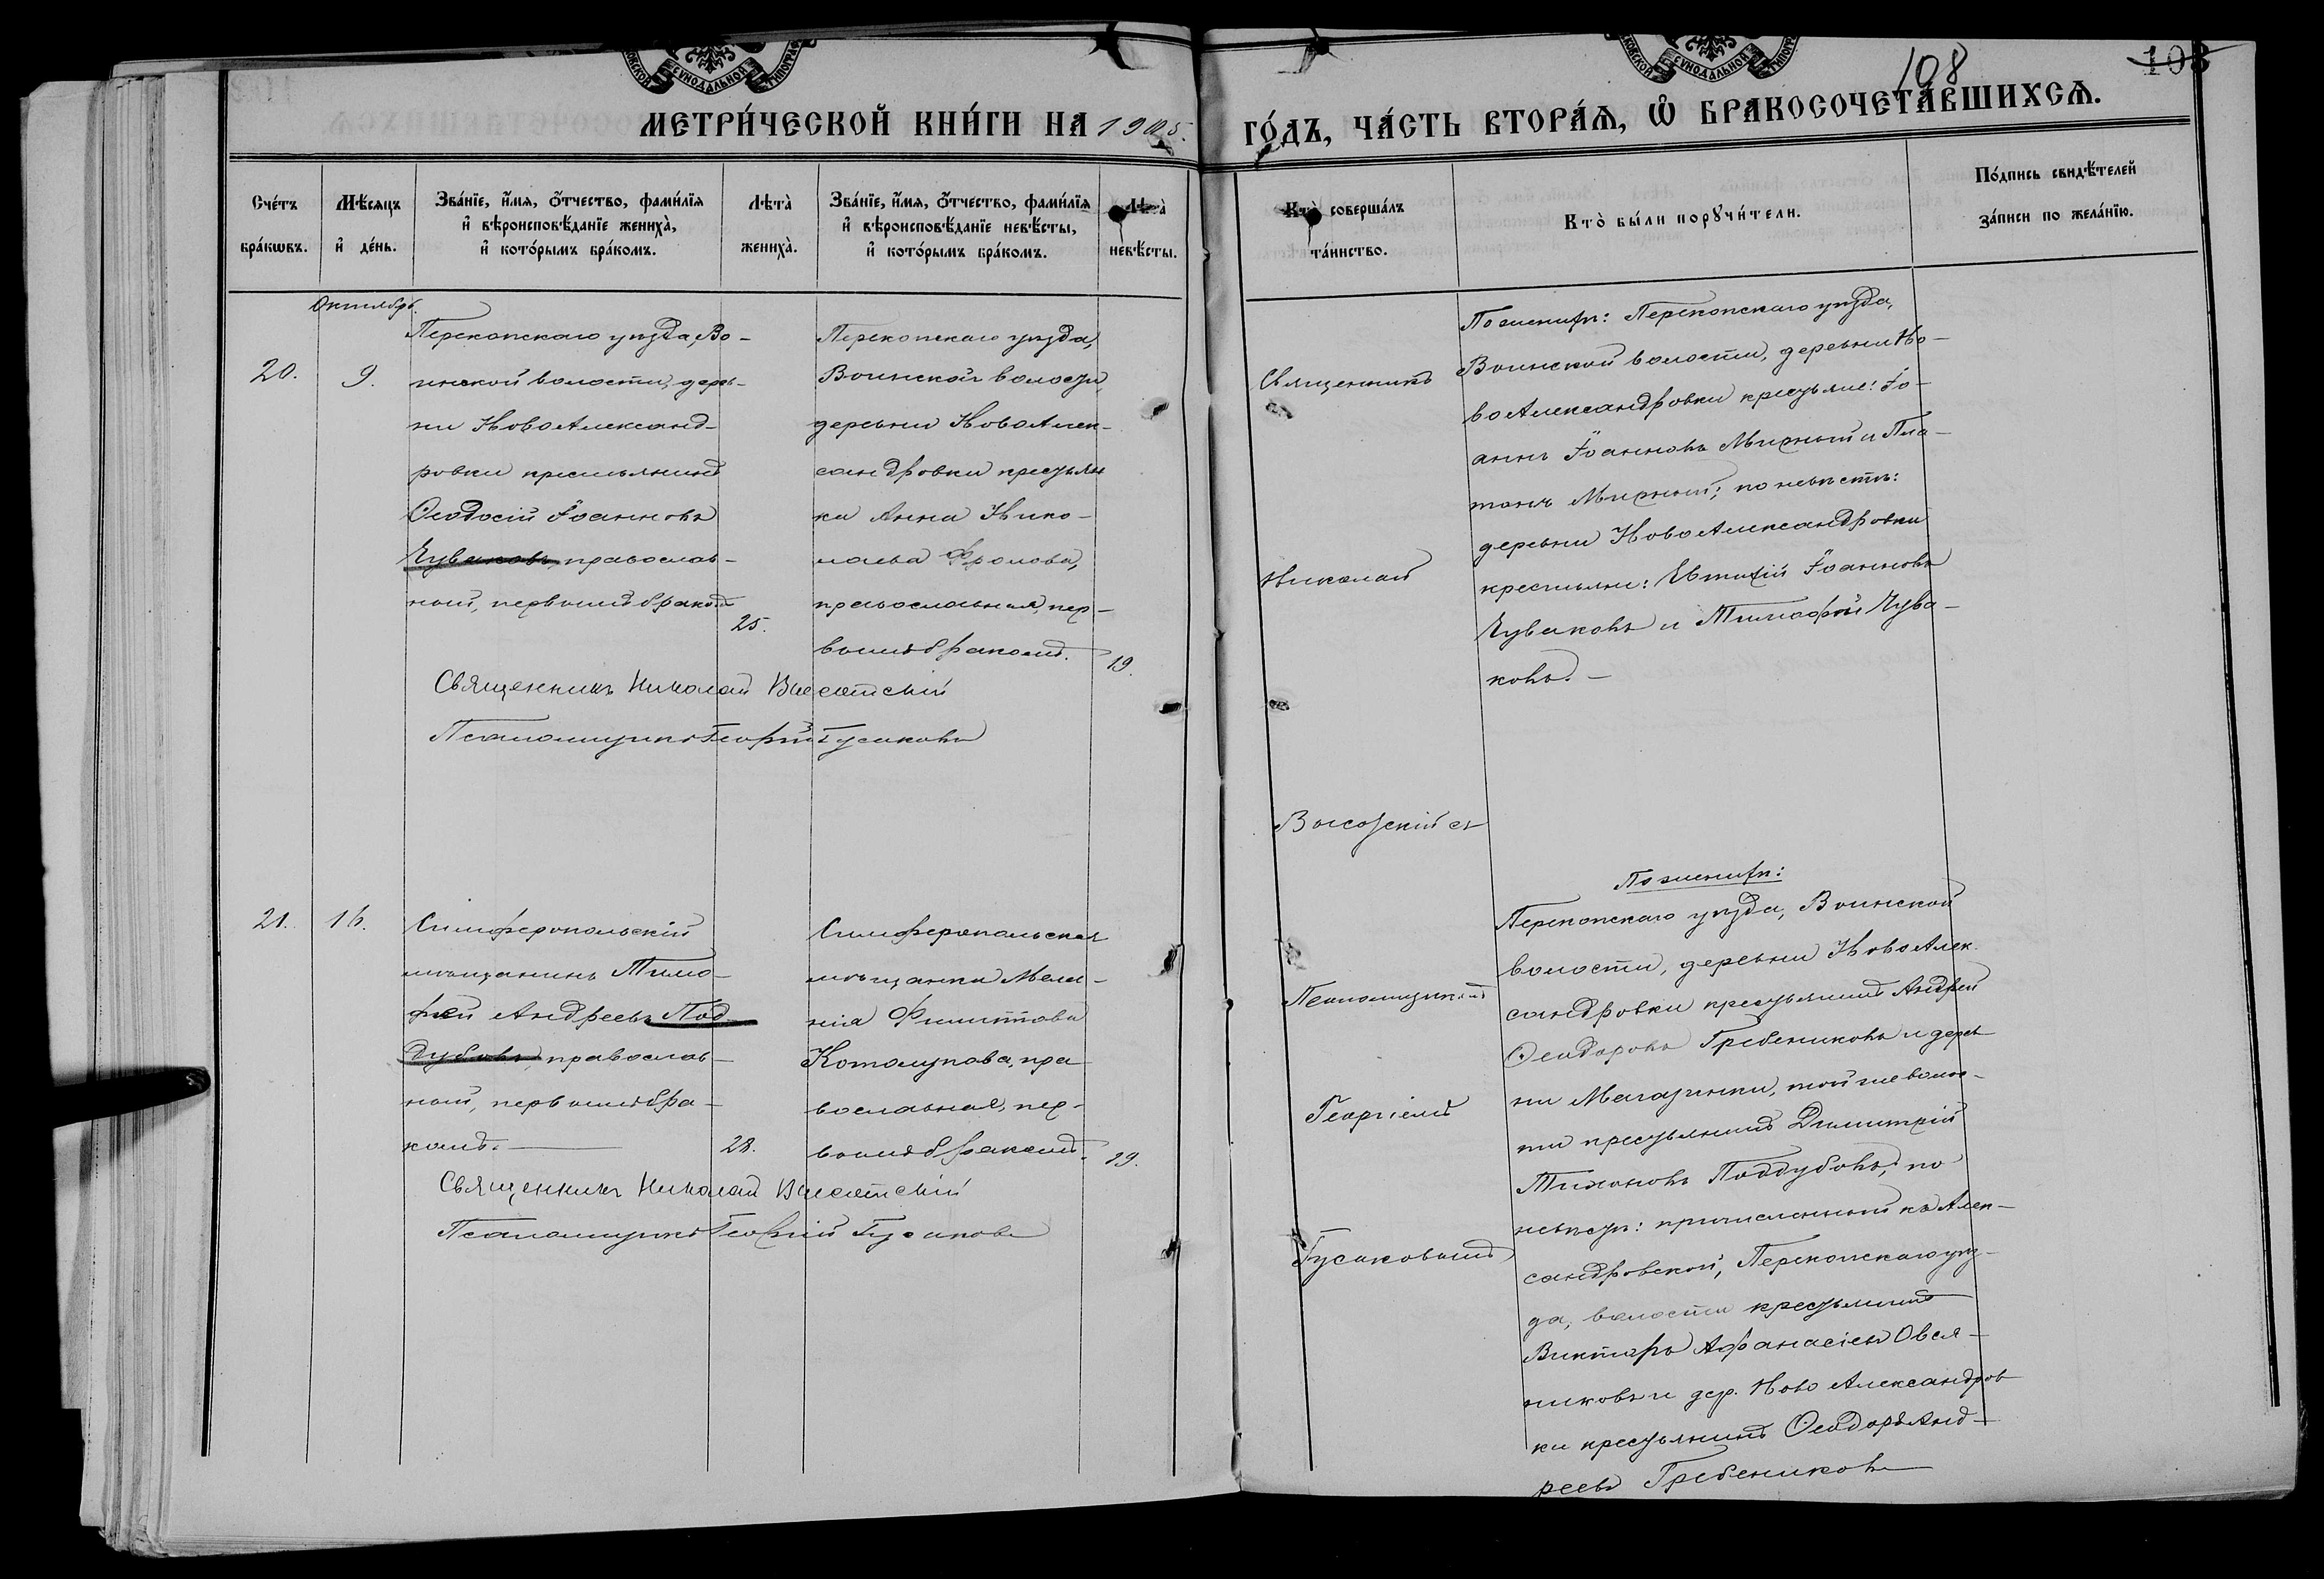 108
103
МЕТРИ́ЧЕСКОЙ КНИ́ГИ НА 1905.
ГО́ДЪ, ЧА́СТЬ ВТОРА́Ѧ, Ѽ БРАКОСОЧЕТА́ВШИХСѦ.
Сче́тъ бра́кѡвъ.
Мѣ́сяцъ и҆ де́нь.
Зва́нїе, и҆́мя, ѻ҆́тчество, фами́лїя и҆ вѣроисповѣ́данїе жениха̀, и҆ кото́рымъ бра́комъ.
Лѣта̀ жениха̀.
Зва́нїе, и҆́мя, ѻ҆́тчество, фами́лїя и҆ вѣроисповѣ́данїе невѣ́сты, и҆ кото́рымъ бра́комъ.
Лѣта̀ невѣ́сты.
Кто̀ соверша́лъ та́инство.
Кто̀ бы́ли порꙋчи́тели.
По́дпись свидѣ́телей за́писи по жела́нїю.
Октябрь.
20.
9.
Перекопскаго уѣзда, Во-
инской волости, дерев-
ни Ново Александ-
ровки крестьянинъ
Ѳеодосій Іоанновъ
Чуваковъ, православ-
ный, первымъ бракомъ
25.
Перекопскаго уѣзда,
Воинской волости,
деревни Ново Алек-
сандровки крестьян
ка Анна Нико-
лаева Фролова,
православная, пер-
вымъ бракомъ.
19.
Священникъ Николай Высотскій
Псаломщикъ Георгій Гусаковъ
Священникъ
Николай
Высотскій съ
Псаломщикомъ
Георгіемъ
Гусаковымъ
По женихѣ: Перекопскаго уѣзда,
Воинской волости, деревни Но-
во Александровки крестьяне: Іо-
аннъ Іоанновъ Мирный и Пла-
тонъ Мирный; по невѣстѣ:
деревни Ново Александровки
крестьяне: Евтихій Іоанновъ
Чуваковъ и Тимофей Чува-
ковъ. —
21.
16.
Симферопольскій
мѣщанинъ Тимо-
фей Андреевъ Под
дубовъ, православ-
ный, первымъ бра-
комъ.
28.
Симферопольская
мѣщанка Мела-
нія Филиппова
Котолупова, пра
вославная, пер-
вымъ бракомъ.
19.
Священникъ Николай Высотскій
Псаломщикъ Георгій Гусаковъ
По женихѣ:
Перекопскаго уѣзда, Воинской
волости, деревни Ново Алек
сандровки крестьянинъ Андрей
Ѳеодоровъ Гребениковъ и дерев
ни Магазинки, той же волос-
ти крестьянинъ Димитрій
Тихоновъ Поддубовъ, по
невѣстѣ: причисленный къ Алек-
сандровской, Перекопскаго уѣз-
да, волости крестьянинъ
Викторъ Афанасіевъ Овся-
никовъ и дер. Ново Александров
ки крестьянинъ Ѳеодоръ Анд-
реевъ Гребениковъ